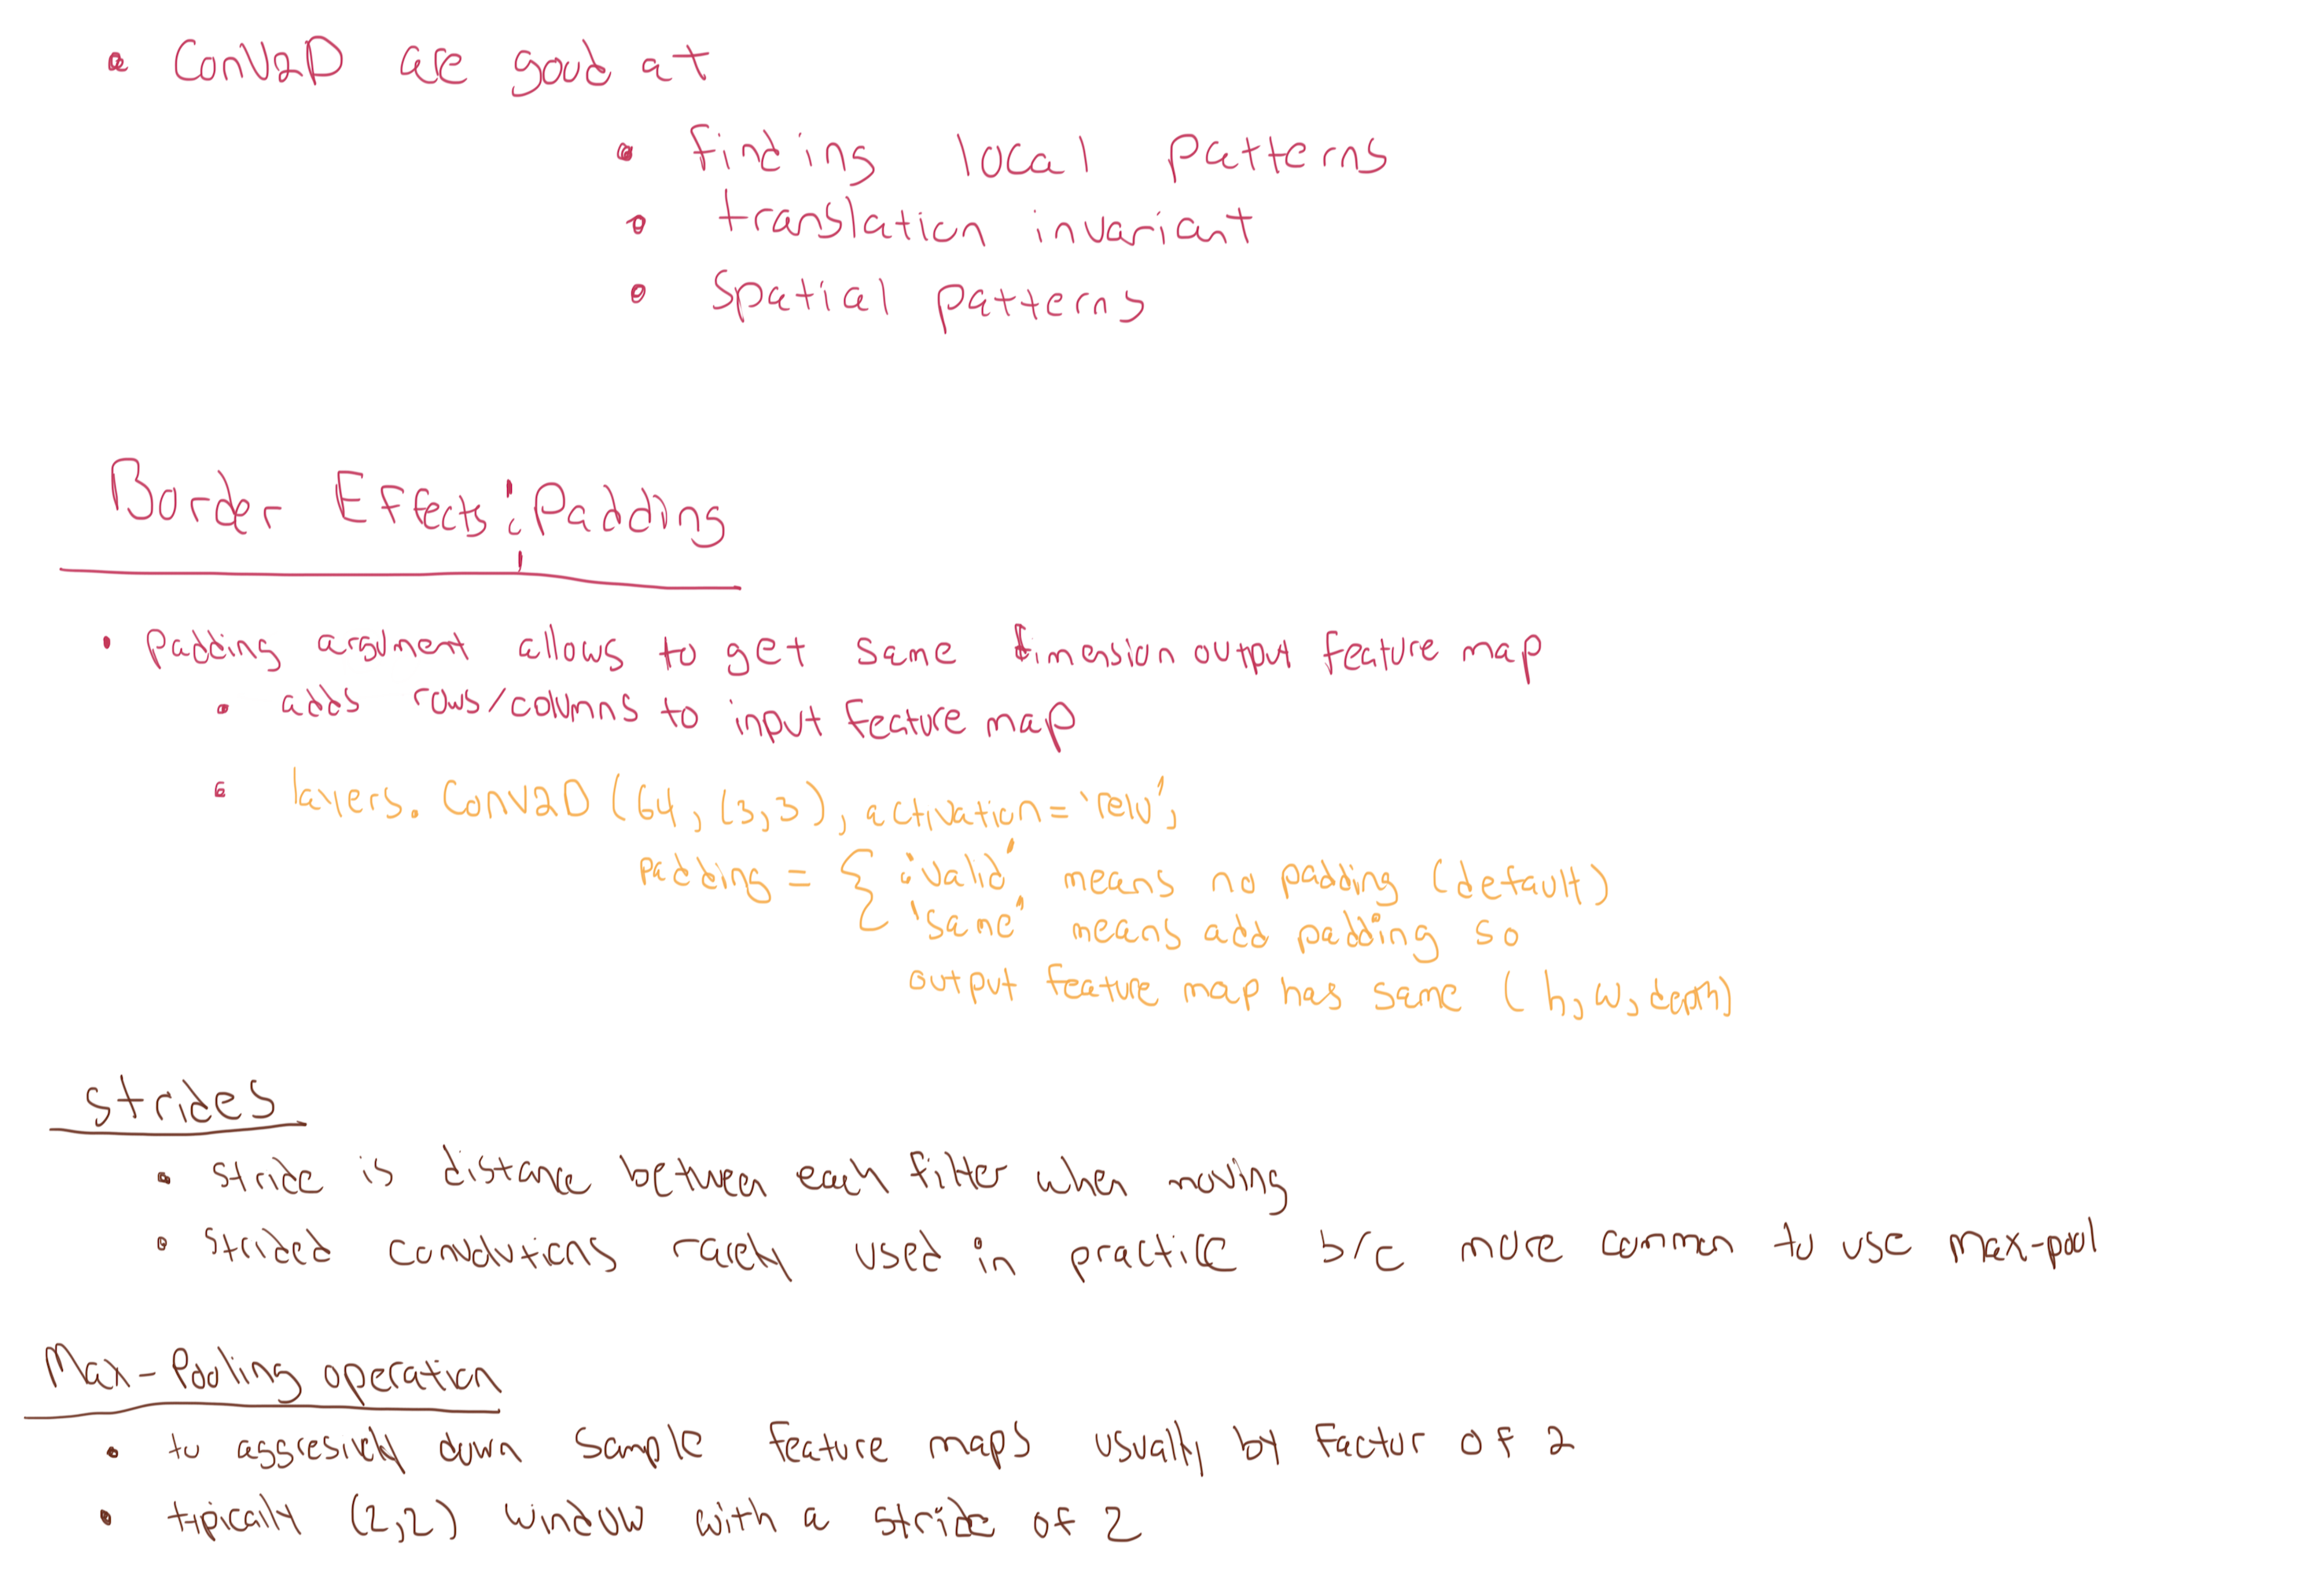 • Conv2D are good at
• finding local patterns
• translation invariant
• spatial patterns
Border Effects & Padding
• padding argument allows to get same dimension output feature map
• adds rows/columns to input feature map
• layers.Conv2D(64, (3,3), activation='relu',
padding = { 'valid' means no padding (default)
'same' means add padding so
output feature map has same (h, w, depth)
Strides
• stride is distance between each filter when moving
• strided convolutions rarely used in practice b/c more common to use max-pool
Max-Pooling operation
• to aggresively down sample feature maps usually by factor of 2
• typically (2,2) window with a stride of 2